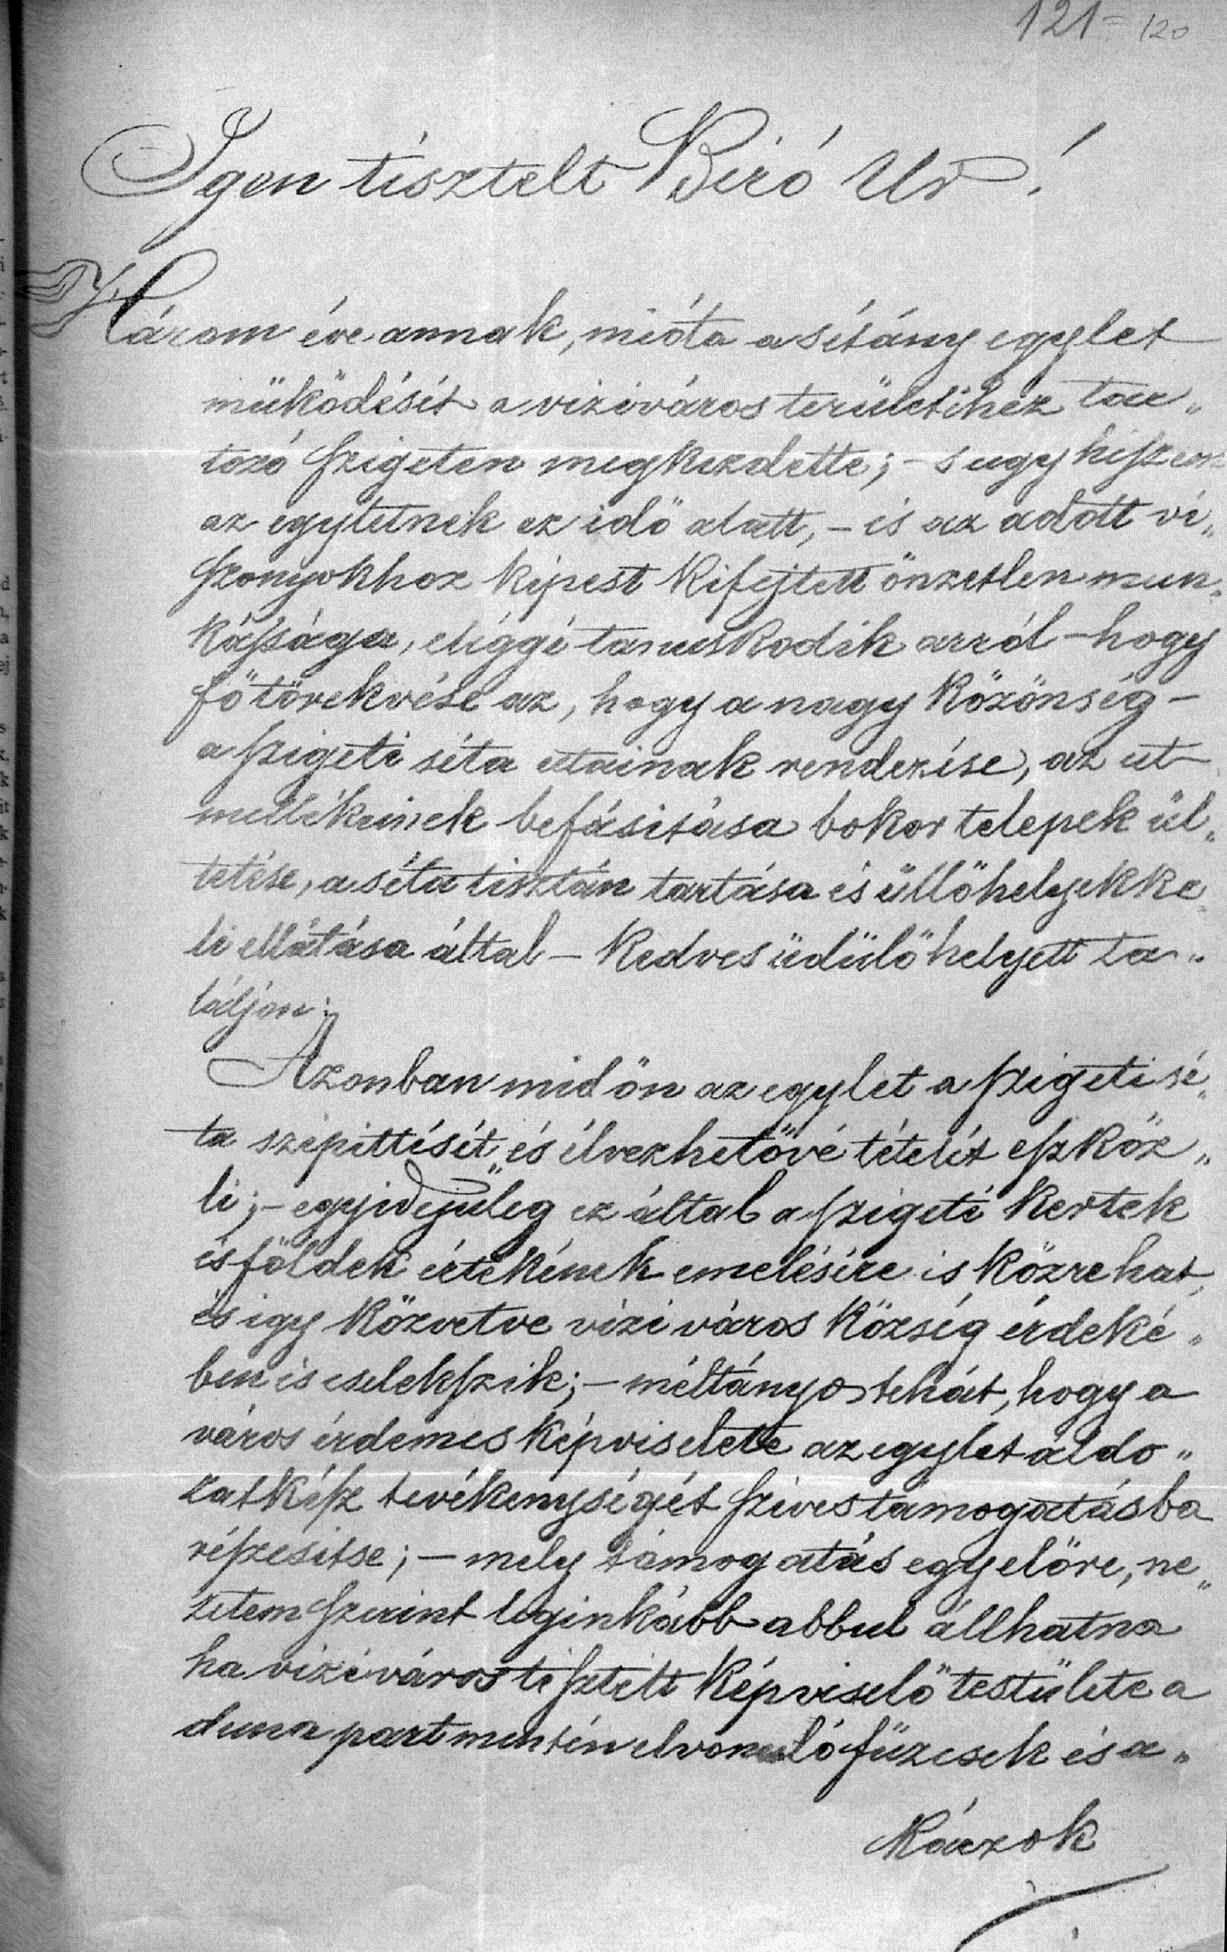 121= 120
Igen tisztelt Biró Ur!
Három éve annak, mióta a sétány egylet
müködését a viziváros területéhez tar„
tozó szigeten megkezdette; – s ugy hiszem
az egyletnek ez idö alatt, – és az adott vi„
szonyokhoz képest kifejtett önzetlen mun„
kássága, eléggé tanuskodik arról – hogy
fötörekvése az, hogy a nagy közönség –
a szigeti séta utainak rendezése, az ut
mellékeinek befásitása bokor telepek ül„
tetése, a séta tisztán tartása és üllöhelyekke„
li ellátása által – kedves üdülö helyett ta„
láljon:
Azonban midön az egylet a szigeti sé„
ta szépittését és élvezhetövé tételét eszköz„
li; – egyidejüleg ez által a szigeti kertek
és földek értékének emelésére is közrehat,
és igy közvetve vizi város község érdeké„
ben is cselekszik; – méltányos tehát, hogy a
város érdemes képviselete az egylet áldo„
zatkész tevékenységét szives támogatásba
részesitse; – mely támogatás egyelöre, né„
zetem szerint leginkább abbul állhatna
ha viziváros tisztelt képviselö testülete a
duna part mentén elvonuló füzesek és a„
káczok